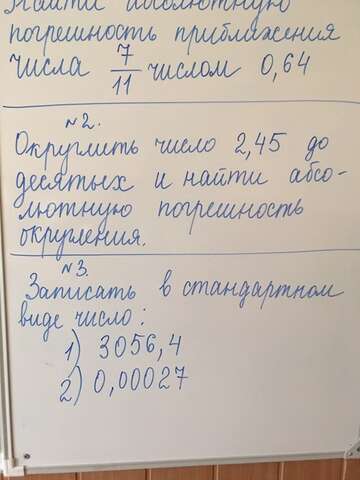 Найти абсолютную
погрешность приближения
числа 7/11 числом 0,64
№2.
Округлить число 2,45 до
десятых и найти абсо-
лютную погрешность
округления.
№3.
Записать в стандартном
виде число:
1) 3056,4
2) 0,00027